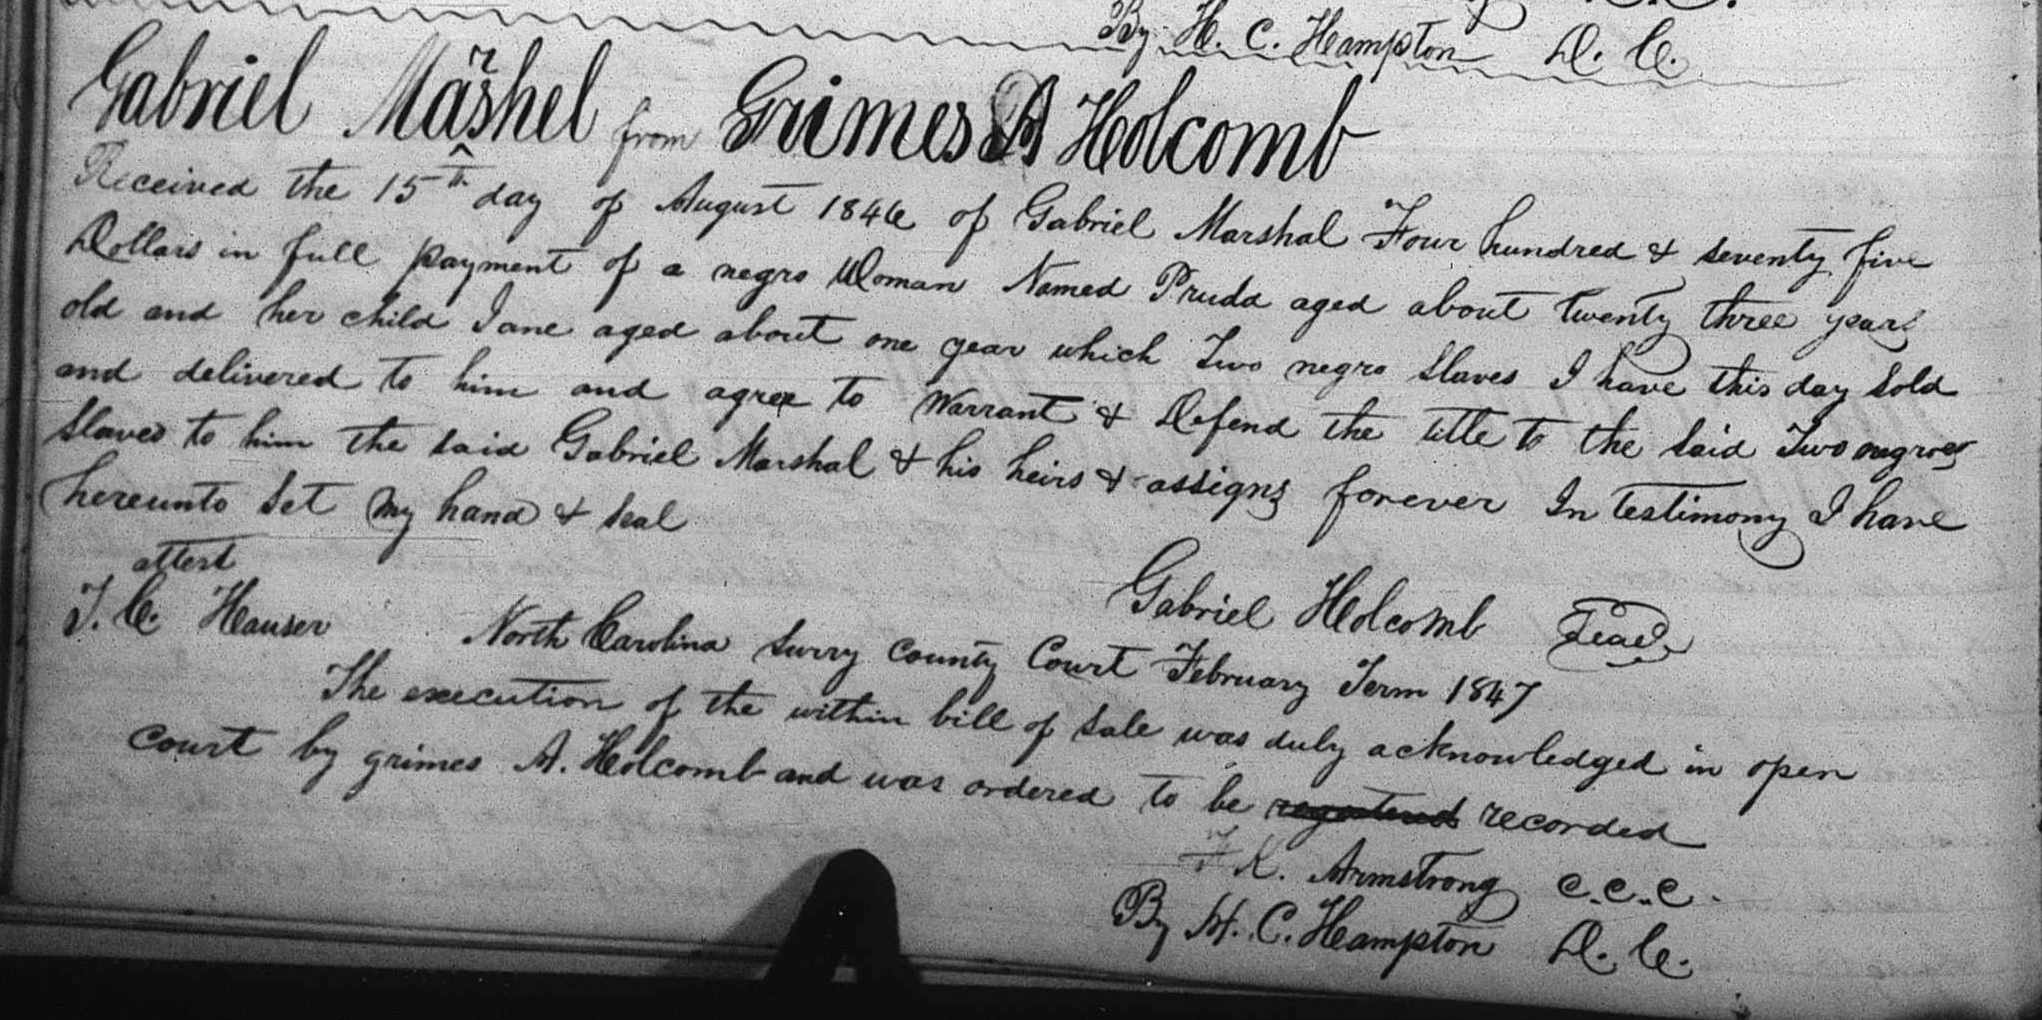 By H. C. Hampton D. C.
Gabriel Marshel from Grimes A Holcomb
Received the 15th day of August 1846 of Gabriel Marshal Four hundred & seventy five
Dollars in full payment of a negro Woman Named Pruda aged about twenty three years
old and her child Jane aged about one year which Two negro slaves I have this day sold
and delivered to him and agree to Warrant & Defend the title to the said Two negroes
slaves to him the said Gabriel Marshal & his heirs & assigns forever In testimony I have
hereunto set my hand & seal
attest
Gabriel Holcomb Seal
J. C. Hauser
North Carolina Surry County Court February Term 1847
The execution of the within bill of sale was duly acknowledged in open
court by grimes A. Holcomb and was ordered to be registered recorded
F K. Armstrong C.C.C.
By H. C. Hampton D. C.